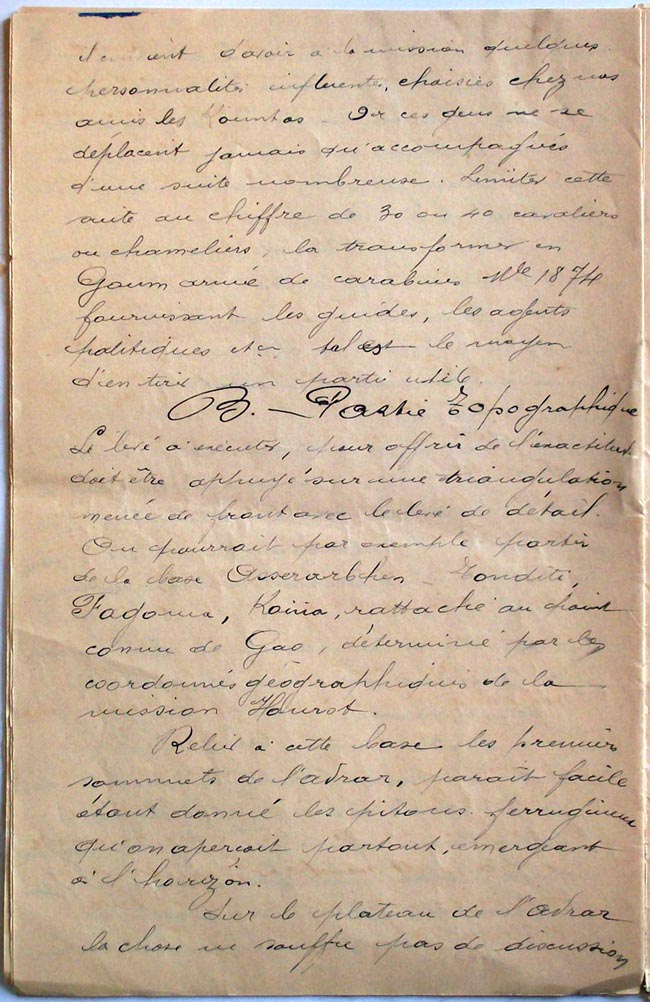 d'avoir à la mission quelques
personnalités influentes, choisies chez nos
amis les Kountas - Or ces gens ne se
déplacent jamais qu'accompagnés
d'une suite nombreuse. Limiter cette
suite au chiffre de 30 ou 40 cavaliers
ou chameliers, la transformer en
Goum armé de carabines Mle 1874
fournissant les guides, les agents
politiques etc tel est le moyen
d'en tirer un parti utile.
B. - Partie Topographique
Le levé à exécuter, pour offrir de l'exactitude
doit être appuyé sur une triangulation
menée de front avec le levé de détail.
On pourrait par exemple partir
de la base Asserarbhen - Tondité,
Fagoma, Koïna, rattaché au point
connu de Gao, déterminé par les
coordonnées géographiques de la
mission Hourst.
Relier à cette base les premiers
sommets de l'adrar, paraît facile
étant donné les pitons ferrugineux
qu'on aperçoit partout, émergeant
à l'horizon.
Sur le plateau de l'adrar
la chose ne souffre pas de discussion